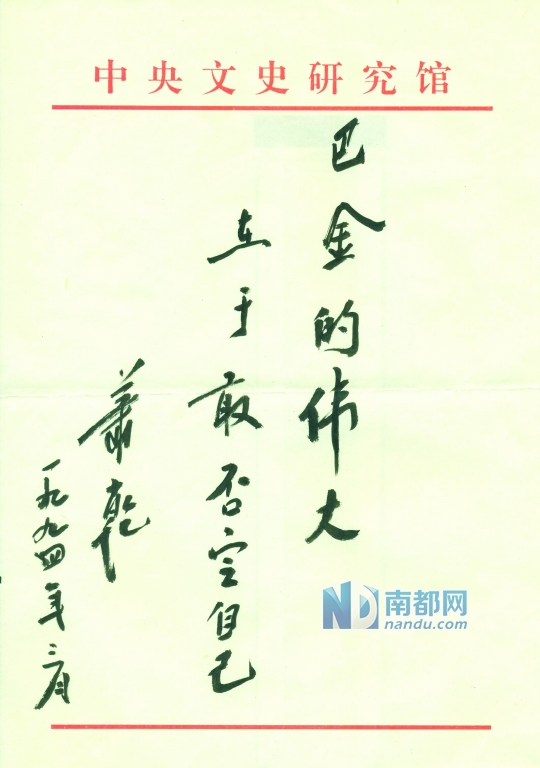 中央文史研究馆
巴金的伟大
在于敢否定自己
萧乾
一九九四年三月
南都网
nandu.com